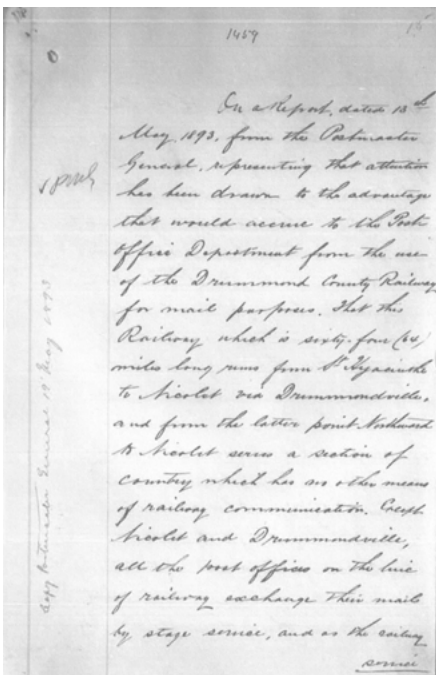 1459
15
On a Report, dated 13th
May, 1893, from the Postmaster
General, representing that attention
has been drawn to the advantage
that would accrue to the Post
Office Department from the use
of the Drummond County Railway
for mail purposes. That this
Railway which is sixty-four (64)
miles long runs from St. Hyacinthe
to Nicolet via Drummondville,
and from the latter point Northward
to Nicolet serves a section of
country which has no other means
of railway communication. Except
Nicolet and Drummondville,
all the post offices on the line
of railway exchange their mails
by stage service, and as the railway
service
Copy Postmaster General 19 May 1893